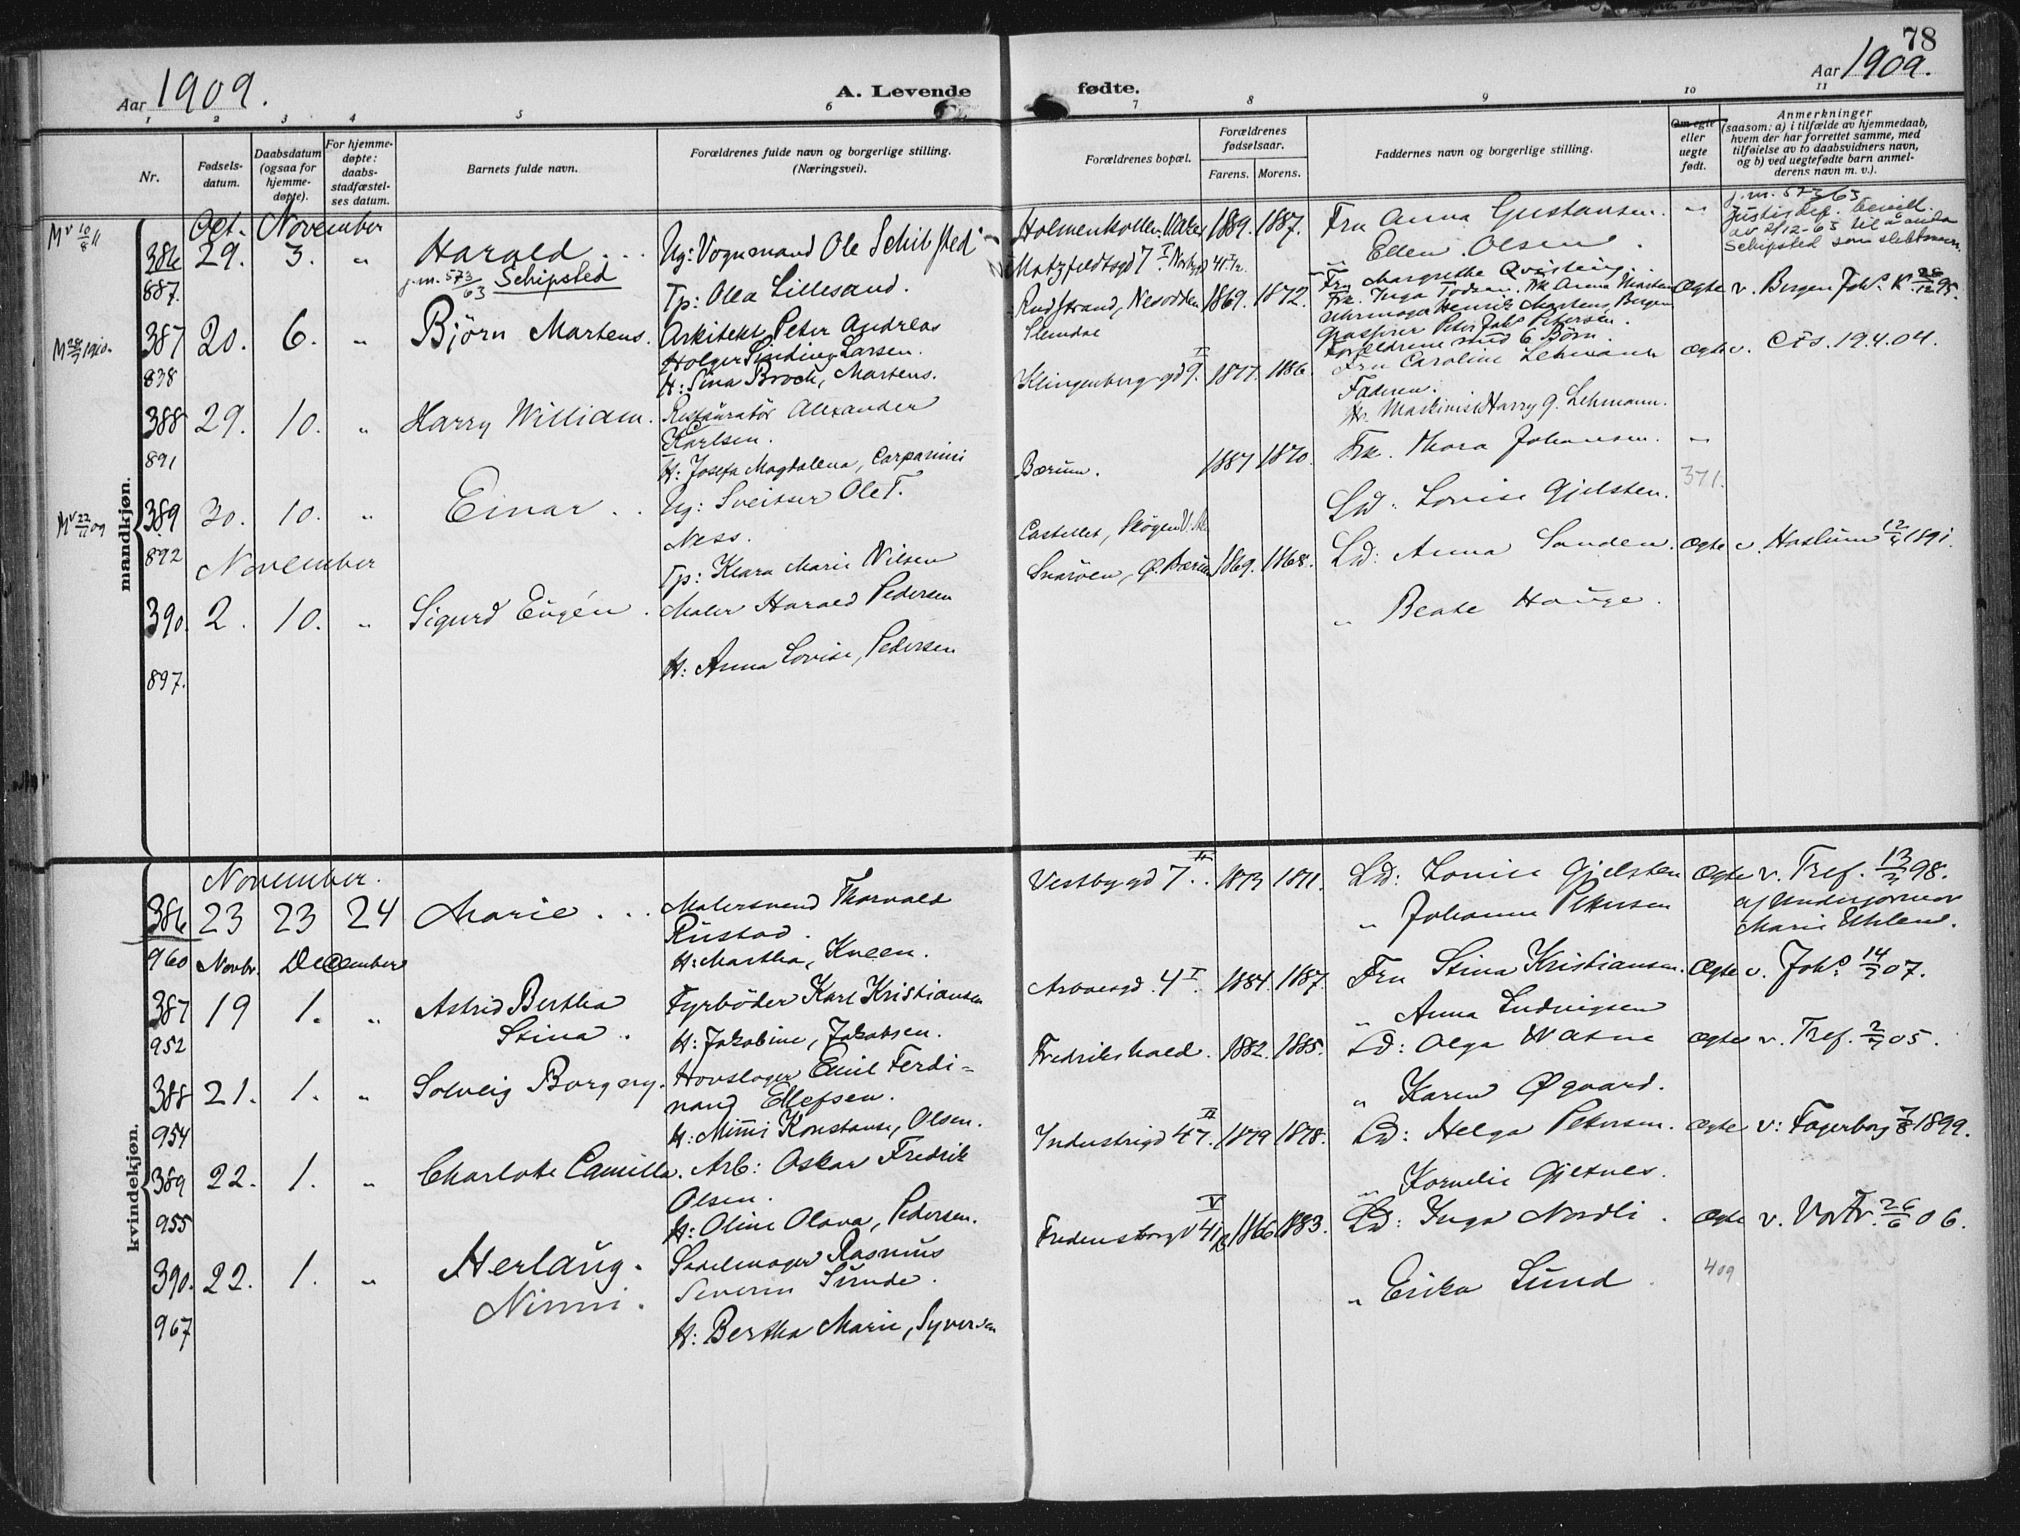 78
Aar 1909.
A. Levende
fødte.
Aar 1909.
1 2 3 4 5 6 7 8 9 10 11
Nr.
Fødsels-
datum.
Daabsdatum
(ogsaa for
hjemme-
døpte).
For hjemme-
døpte:
daabs-
stadfæstel-
ses datum.
Barnets fulde navn.
Forældrenes fulde navn og borgerlige stilling.
(Næringsvei).
Forældrenes bopæl.
Forældrenes
fødselsaar.
Farens. Morens.
Faddernes navn og borgerlige stilling.
Om egte
eller
uegte
født.
Anmerkninger
(saasom: a) i tilfælde av hjemmedaab,
hvem der har forrettet samme, med
tilføielse av to daabsvidners navn,
og b) ved uegtefødte barn anmel-
derens navn m. v.).
mandkjøn.
Oct. November
386 29. 3. „ Harald
887.
j.m. 573/63 Schipsted
Ug: Vognmand Ole Schibsted
Tp: Olea Lillesand.
1889. 1887.
Fru Anna Gustansen.
„ Ellen Olsen.
j.m. 573/63
Justisdep. bevill.
av 2/12-63 til å anta
Schipsted som slektsnavn.
387 20. 6. „ Bjørn Martens.
838
Arkitekt Peter Andreas
Holger Sinding Larsen.
H: Sina Broch, Martens.
Rudstrand, Nesodden
1869. 1872.
Fru Margrethe Qvisling
Uhrmager Henrik Martens, Bergen
Grosserer Peter Joh. Petersen.
Forældrene med 6 Børn.
Ægte v. Bergen Joh. K. 28/12 95.
388 29. 10. „ Harry William.
891
Restauratør Alexander
Karlsen.
H: Josefa Magdalena, Carpanini
Klingenberg gd 9. I 1877. 1886.
Fru Caroline Lehmann
Faderen.
Hr. Maskinist Harry G. Lehmann.
Ægte v. Cis. 19.4.04.
389 30. 10. „ Einar
892
Ug: Sveitser Ole T.
Ness.
Tp: Klara Marie Nilsen
Bærum. 1887 1870.
Frk. Thora Johansen.
Ld: Lovise Gjelsten.
371.
November
390. 2. 10. „ Sigurd Eugén.
897.
Maler Harald Pedersen
H: Anna Lovise, Pedersen
Snarøen, Ø. Bærum 1869. 1868.
Ld: Anna Sanden.
„ Beate Hauge.
Ægte v. Haslum 12/4 1891.
kvindekjøn.
November.
386 23 23 24 Marie
960
Malersvend Thorvald
Rustad.
H: Martha, Kneen.
Vestbygd 7 1873 1871.
Ld: Lovise Gjelsten
„ Johanne Pettersen
Ægte v. Tref. 13/3 98.
af Underjormor
Marie Uhlen.
Novbr. December
387 19 1. „ Astrid Bertha
952 Stina.
Fyrbøder Karl Kristiansen
H: Jakobine, Jakobsen.
4 I. 1884. 1887.
Fru Stina Kristiansen.
„ Anna Ludvigsen
Ægte v. Joh. 14/7 07.
388 21. 1. „ Solveig Borgny.
954
Hovslager Emil Ferdi-
nand Ellefsen.
H: Mimmi Konstanse, Olsen.
Fredrikshald. 1882. 1885.
Ld: Olga Watne
„ Karen Øgaard.
Ægte v. Tref. 2/7 05.
389 22. 1. „ Charlote Camilla.
955
Arb: Oskar Fredrik
Olsen.
H: Oline Olava, Pedersen.
Industrigd 47. II 1879 1878.
Ld: Helga Petersen.
„ Kornelie Gjetnes.
Ægte v: Fagerborg 7/8 1899.
390. 22. 1. „ Herlaug.
967 Nimmi.
Sadelmager Rasmus
Severin Sunde.
H: Bertha Marie, Syversen
Fredensborgv 41 V 1866 1883.
Ld: Inga Nordli.
„ Erika Lund.
Ægte v. Vor Fr. 26/6 06.
409